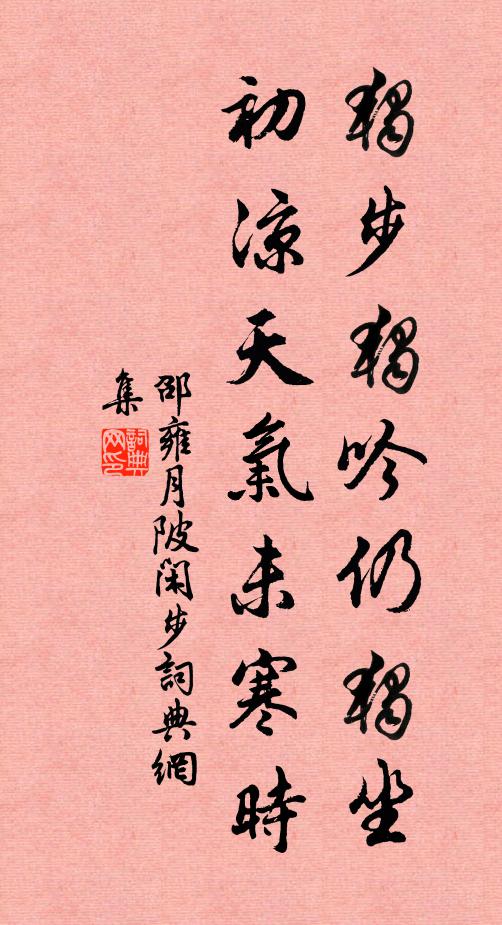 獨步獨吟仍獨坐
初涼天氣未寒時
邵雍月陂閑步詞典網
集
詞典
网印